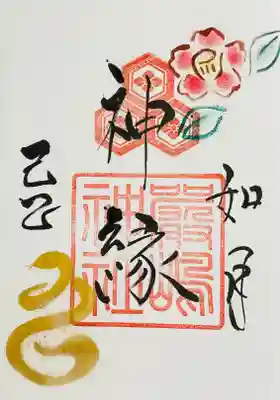 如月
神縁
嚴嶋
神社
乙巳